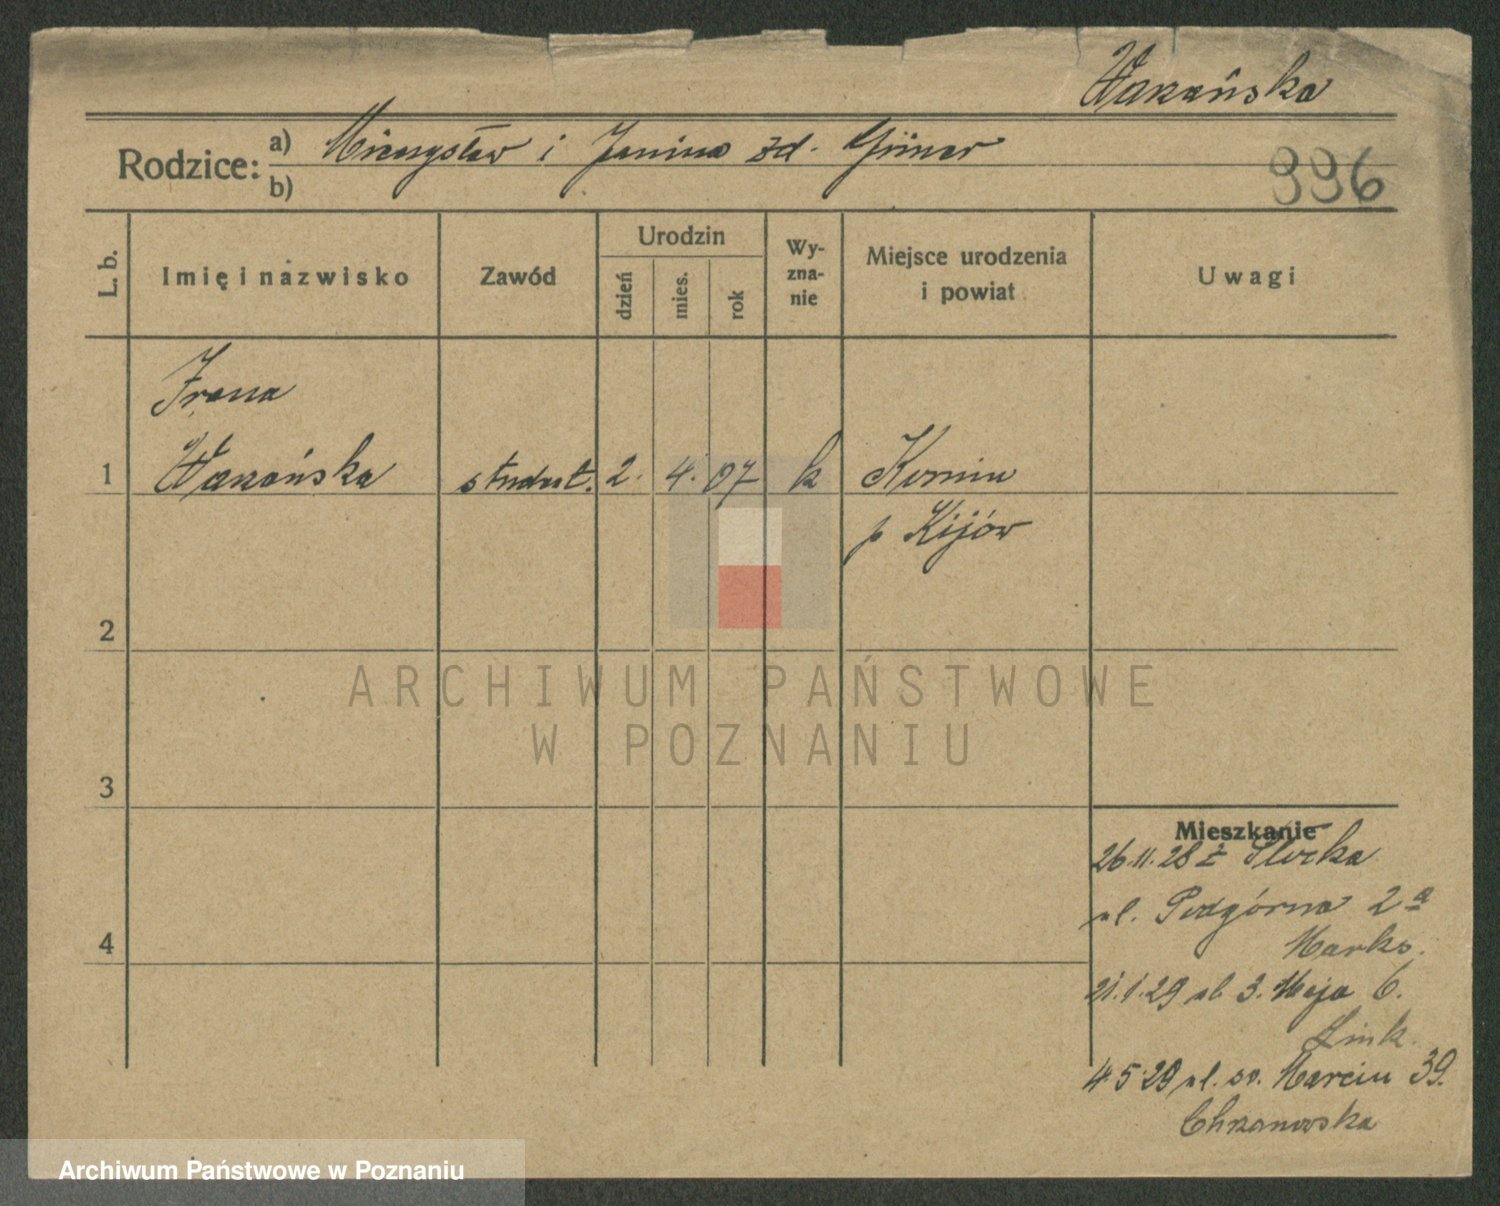 Wazańska
Rodzice: a) Mieczysław i Janina zd.
b)
996
L. b.
Imię i nazwisko
Zawód
Urodzin
dzień
mies.
rok
Wy-
zna-
nie
Miejsce urodzenia
i powiat
Uwagi
Irena
1 Wazańska student. 2. 4. 07 k
p Kijów
2
ARCHIWUM PAŃSTWOWE
W POZNANIU
3
Mieszkanie
26.11.28 z Płocka
ul. Podgórna 2a
4
21.1.29 ul. 3. Maja 6.
Link.
4.5.29 ul. św. Marcin 39.
Chrzanowska
Archiwum Państwowe w Poznaniu